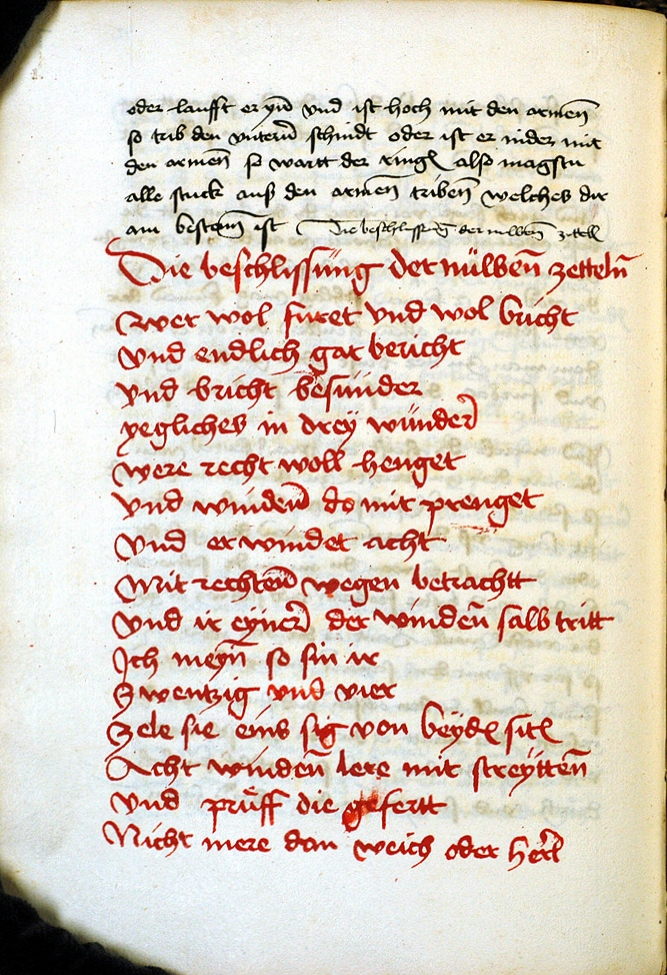 oder laufft er yn̄ vnd ist hoch mit den armen̄
so trib den vntern̄ schindt oder ist er nider mit
den armen̄ so wartt der ringē also magstu
alle stuck auß den armen̄ triben̄ welches dir
am bestem̄ ist Die beschlissūn der nulben̄ zettell
Die beschlissüng der nülben̄ zetteln̄
Wer wol füret vnd wol bricht
vnd endlich gar bericht
vnd bricht besünder
yegliches in drey wünder̄
were recht woll henget
vnd winden̄ do mit prenget
Vnd er windet acht
Mit rechten̄ wegen betrachtt
Vnd ir eyner̄ der winden̄ salb tritt
Ich meyn̄ so sin ir
Zwentzig vnd vier
Zele sie eins sig von beydē sitē
Acht winden̄ lere mit streytten̄
Vnd prüff die gefertt
Nicht mere dan weich oder hert